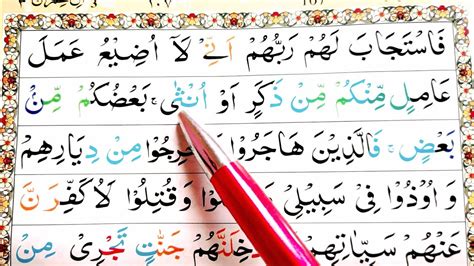 فَاسْتَجَابَ لَهُمْ رَبُّهُمْ اَنِّیْ لَاۤ اُضِیْعُ عَمَلَ
عَامِلٍ مِّنْكُمْ مِّنْ ذَكَرٍ اَوْ اُنْثٰی ۚ بَعْضُكُمْ مِّنْۢ
بَعْضٍ ۚ فَالَّذِیْنَ هَاجَرُوْا وَاُخْرِجُوْا مِنْ دِیَارِهِمْ
وَ اُوْذُوْا فِیْ سَبِیْلِیْ وَقُتِلُوْا لَاُكَفِّرَنَّ
عَنْهُمْ سَیِّاٰتِهِمْ جَنّٰتٍ تَجْرِیْ مِنْ